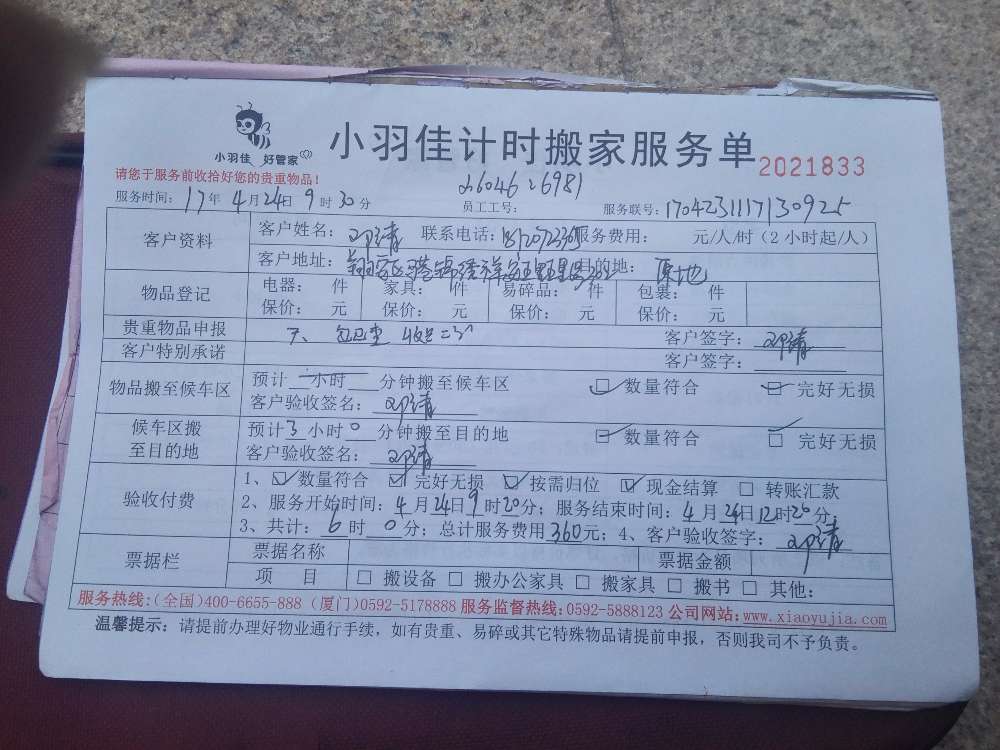 小羽佳 好管家
小羽佳计时搬家服务单
2021833
请您于服务前收拾好您的贵重物品！
服务时间：17年4月24日9时30分 员工工号： 服务联号：1704231117130925
客户资料 客户姓名： 联系电话： 服务费用： 元/人/时（2小时起/人）
客户地址： 目的地：原地
物品登记 电器： 件 家具： 件 易碎品： 件 包裹： 件
保价： 元 保价： 元 保价： 元 保价： 元
贵重物品申报 客户签字：
客户特别承诺 客户签字：
物品搬至候车区 预计 小时 分钟搬至候车区 数量符合 完好无损
客户验收签名：
候车区搬至目的地 预计3小时0分钟搬至目的地 数量符合 完好无损
客户验收签名：
验收付费 1、数量符合 完好无损 按需归位 现金结算 转账汇款
2、服务开始时间：4月24日9时20分；服务结束时间：4月24日12时20分；
3、共计：6时0分；总计服务费用360元；4、客户验收签字：
票据栏 票据名称 票据金额
项 目 搬设备 搬办公家具 搬家具 搬书 其他：
服务热线：(全国)400-6655-888 (厦门)0592-5178888 服务监督热线：0592-5888123 公司网站：www.xiaoyujia.com
温馨提示：请提前办理好物业通行手续，如有贵重、易碎或其它特殊物品请提前申报，否则我司不予负责。